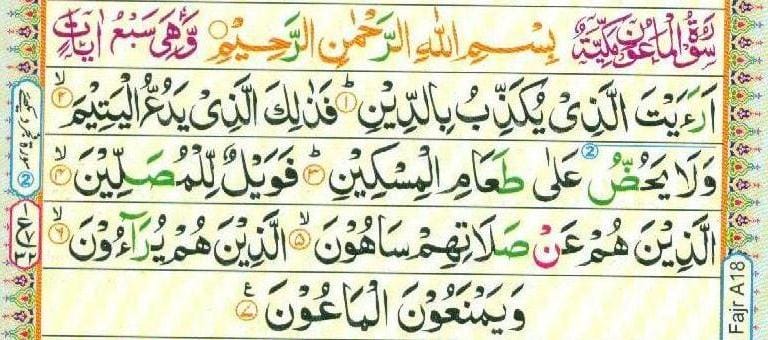 سُوْرَةُ الْمَاعُوْنِ مَكِّيَّةٌ بِسْمِ اللّٰهِ الرَّحْمٰنِ الرَّحِيْمِ وَّهِىَ سَبْعُ اٰيَاتٍ
اَرَءَيْتَ الَّذِىْ يُكَذِّبُ بِالدِّيْنِ ؕ﴿۱﴾ فَذٰلِكَ الَّذِىْ يَدُعُّ الْيَتِيْمَ ۙ﴿۲﴾
وَلَا يَحُضُّ عَلٰى طَعَامِ الْمِسْكِيْنِ ؕ﴿۳﴾ فَوَيْلٌ لِّلْمُصَلِّيْنَ ۙ﴿۴﴾
الَّذِيْنَ هُمْ عَنْ صَلَاتِهِمْ سَاهُوْنَ ۙ﴿۵﴾ الَّذِيْنَ هُمْ يُرَآءُوْنَ ۙ﴿۶﴾
وَيَمْنَعُوْنَ الْمَاعُوْنَ ﴿۷﴾ ع
2
2
Fajr A18